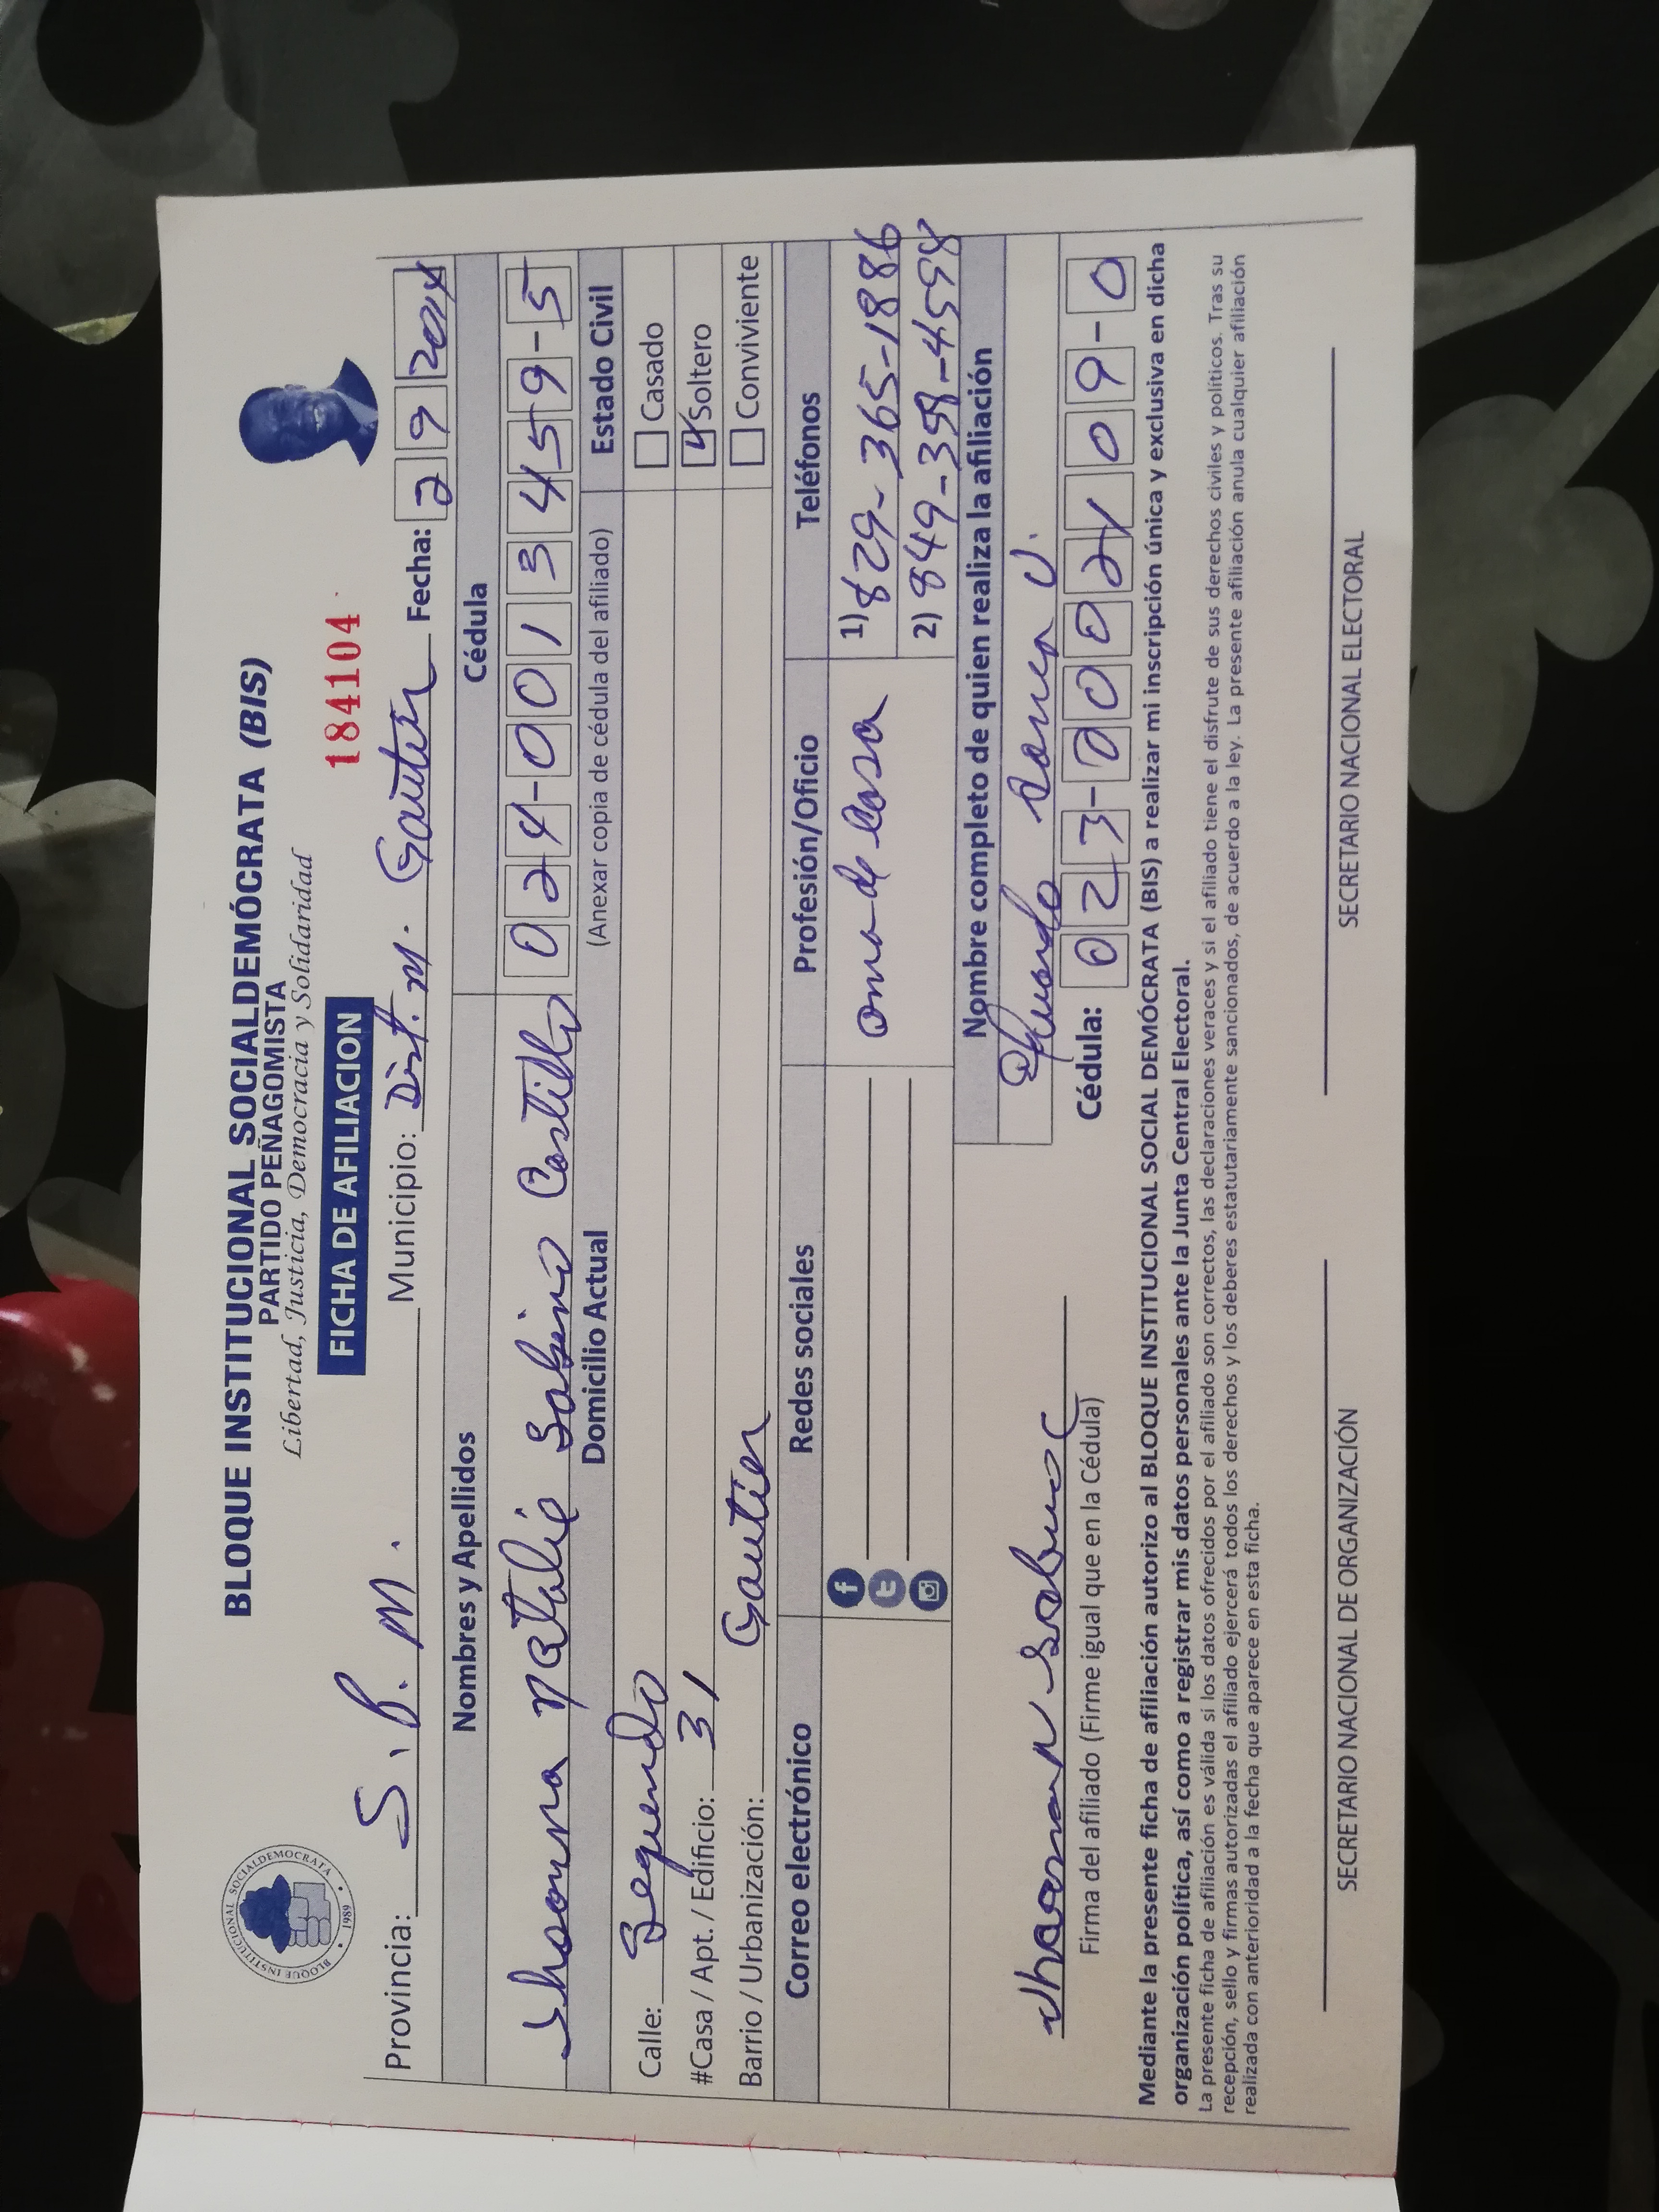 BLOQUE INSTITUCIONAL SOCIALDEMÓCRATA (BIS)
PARTIDO PEÑAGOMISTA
Libertad, Justicia, Democracia y Solidaridad
BLOQUE INSTITUCIONAL SOCIALDEMOCRATA • 1989 •
FICHA DE AFILIACION
184104
Provincia: S. P. M. Municipio: Dist. M. Gautier Fecha: 2 9
Nombres y Apellidos Cédula
Natalie Sabino Castillo 024-0013459-5
Domicilio Actual (Anexar copia de cédula del afiliado) Estado Civil
Calle: Segundo Casado
#Casa / Apt. / Edificio: 31 Soltero
Barrio / Urbanización: Gautier Conviviente
Correo electrónico Redes sociales Profesión/Oficio Teléfonos
ama de casa 1) 829-365-1886
2) 849-
Nombre completo de quien realiza la afiliación
Cédula: 023-0002109-0
Firma del afiliado (Firme igual que en la Cédula)
Mediante la presente ficha de afiliación autorizo al BLOQUE INSTITUCIONAL SOCIAL DEMÓCRATA (BIS) a realizar mi inscripción única y exclusiva en dicha
organización política, así como a registrar mis datos personales ante la Junta Central Electoral.
La presente ficha de afiliación es válida si los datos ofrecidos por el afiliado son correctos, las declaraciones veraces y si el afiliado tiene el disfrute de sus derechos civiles y políticos. Tras su
recepción, sello y firmas autorizadas el afiliado ejercerá todos los derechos y los deberes estatutariamente sancionados, de acuerdo a la ley. La presente afiliación anula cualquier afiliación
realizada con anterioridad a la fecha que aparece en esta ficha.
SECRETARIO NACIONAL DE ORGANIZACIÓN SECRETARIO NACIONAL ELECTORAL